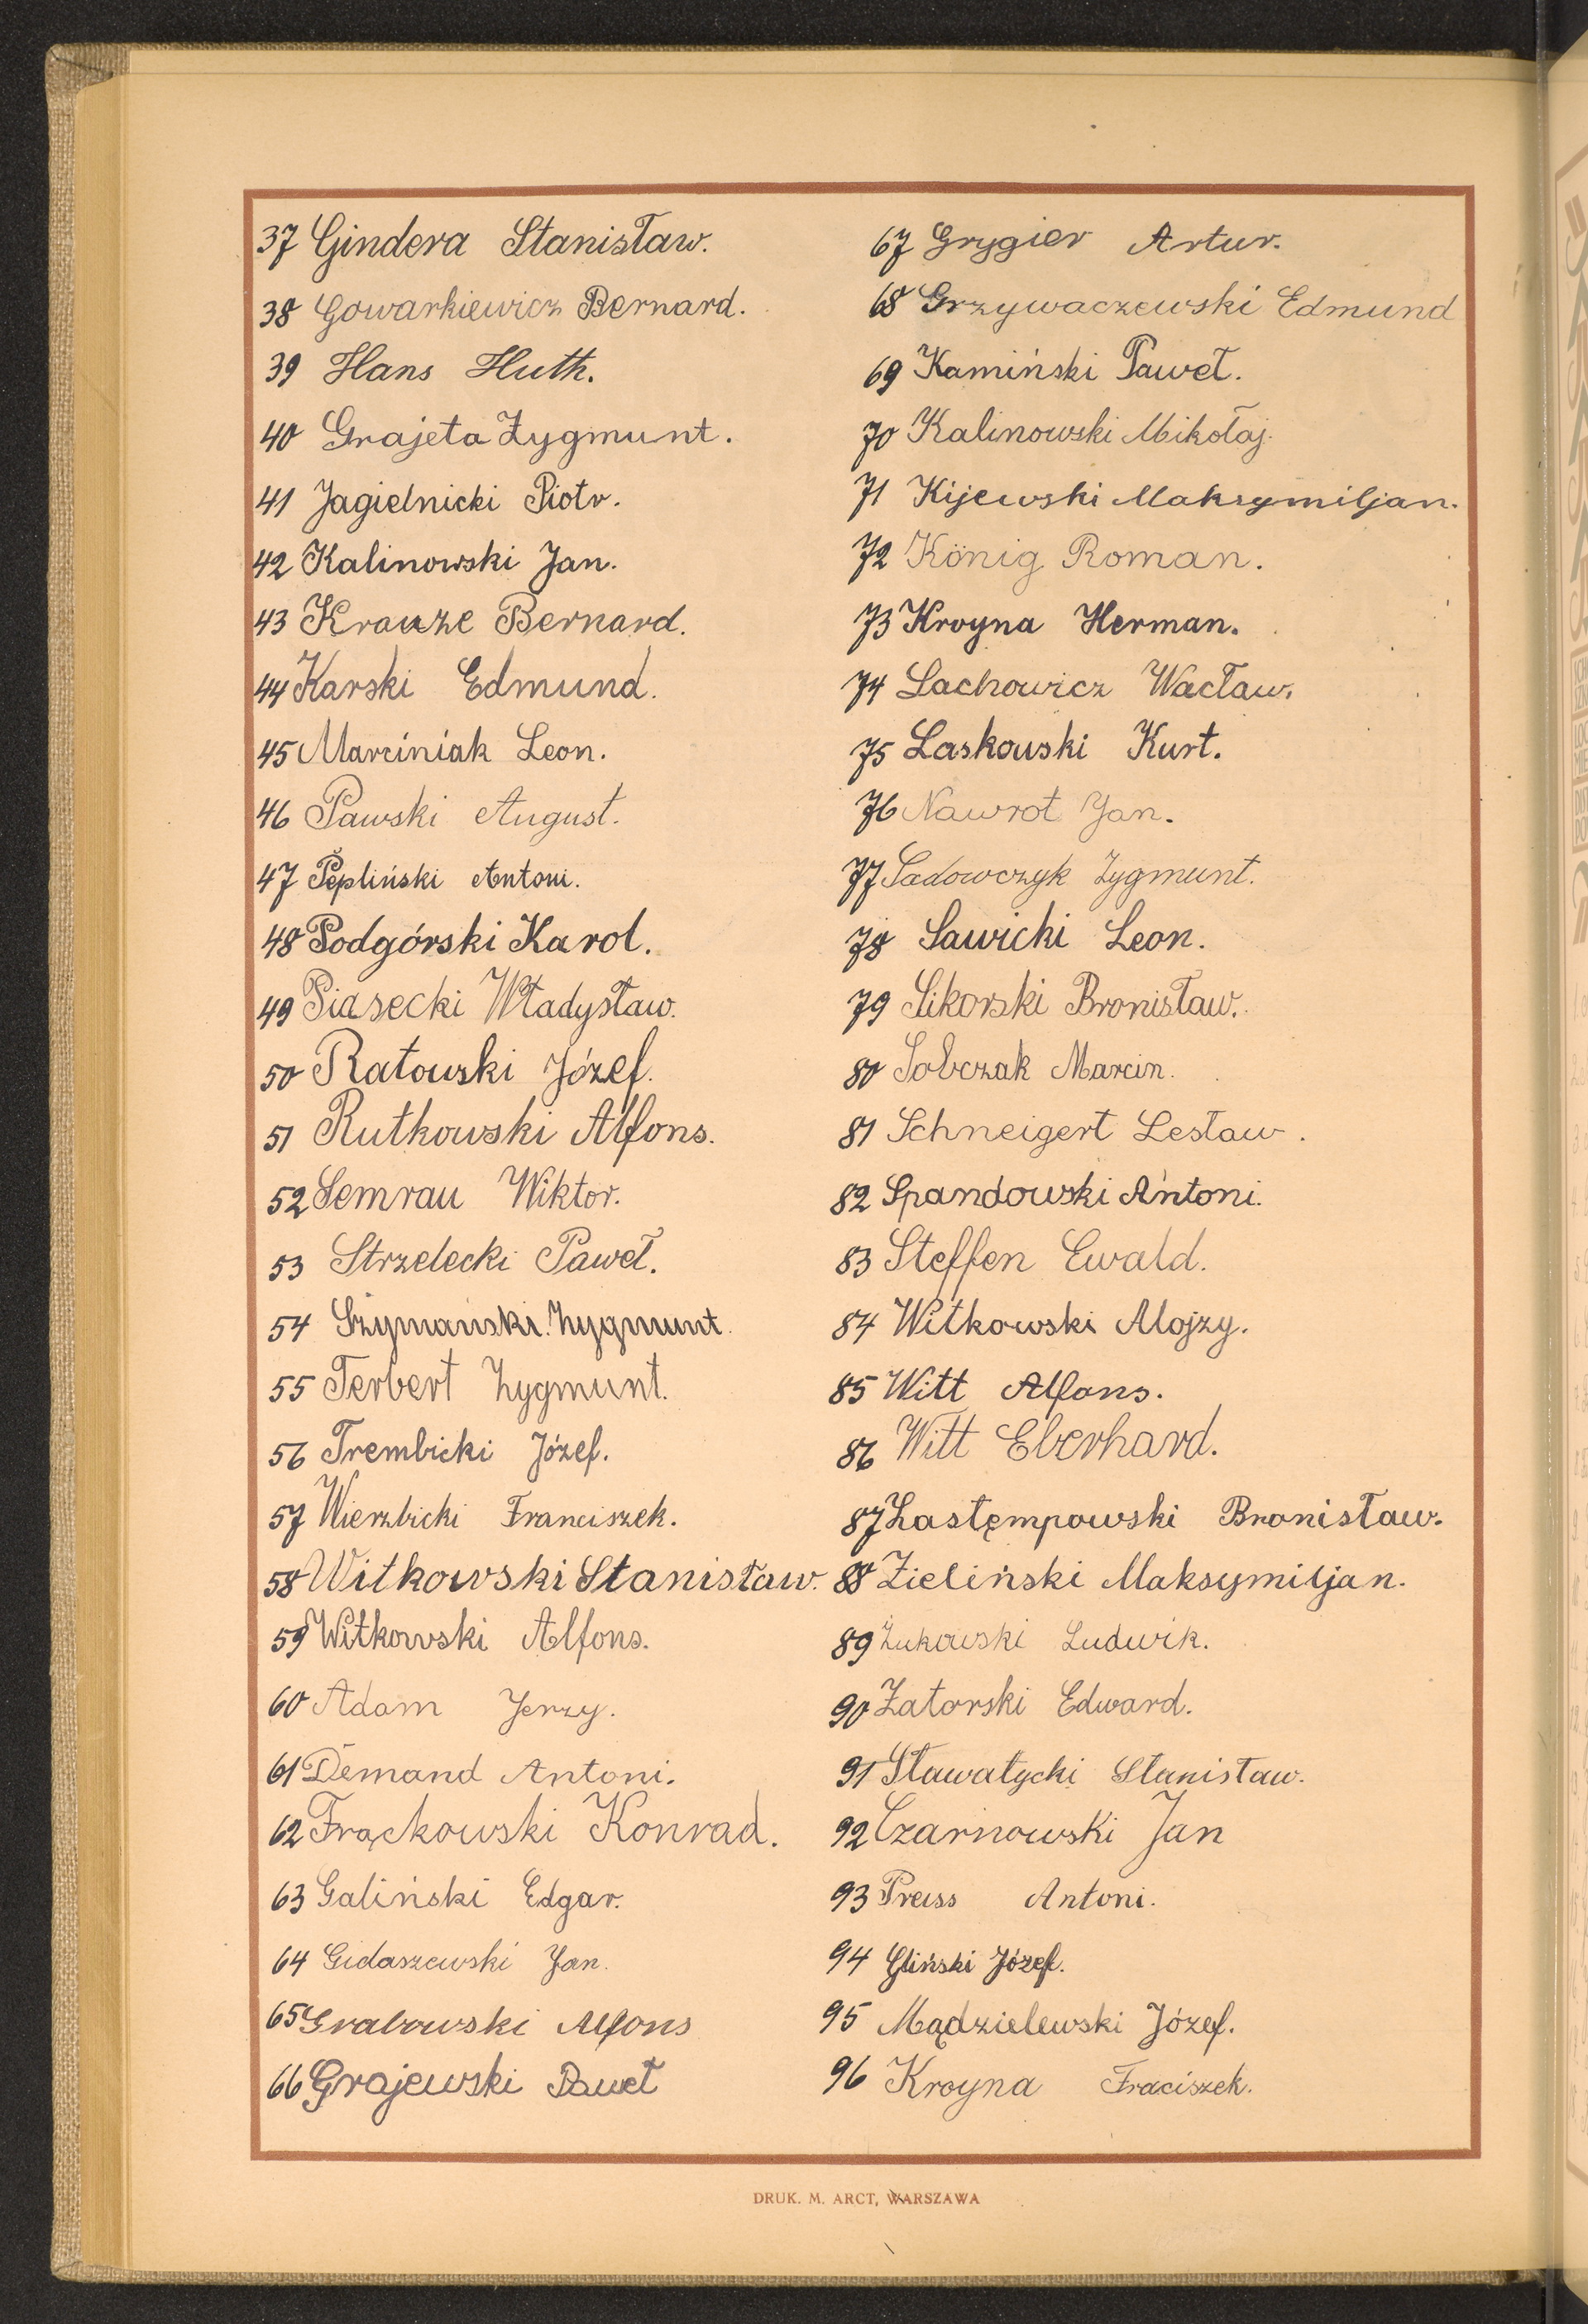 37 Gindera Stanisław.
38 Gowarkiewicz Bernard.
39 Hans Huth.
40 Grajeta Zygmunt.
41 Jagielnicki Piotr.
42 Kalinowski Jan.
43 Krauze Bernard.
44 Karski Edmund.
45 Marciniak Leon.
46 Pawski August.
47 Pepliński Antoni.
48 Podgórski Karol.
49 Piasecki Władysław.
50 Ratowski Józef.
51 Rutkowski Alfons.
52 Semrau Wiktor.
53 Strzelecki Paweł.
54 Szymański Zygmunt.
55 Terbert Zygmunt.
56 Trembicki Józef.
57 Wierzbicki Franciszek.
58 Witkowski Stanisław.
59 Witkowski Alfons.
60 Adam Jerzy.
61 Demand Antoni.
62 Frąckowski Konrad.
63 Galiński Edgar.
64 Gidaszewski Jan.
65 Grabowski Alfons
66 Grajewski Paweł
67 Grygier Artur.
68 Grzywaczewski Edmund
69 Kamiński Paweł.
70 Kalinowski Mikołaj.
71 Kijewski Maksymiljan.
72 König Roman.
73 Kroyna Herman.
74 Lachowicz Wacław.
75 Laskowski Kurt.
76 Nawrot Jan.
77 Sadowczyk Zygmunt.
78 Sawicki Leon.
79 Sikorski Bronisław.
80 Sobczak Marcin.
81 Schneigert Lesław.
82 Spandowski Antoni.
83 Steffen Ewald.
84 Witkowski Alojzy.
85 Witt Alfons.
86 Witt Eberhard.
87 Zastępowski Bronisław.
88 Zieliński Maksymiljan.
89 Żukowski Ludwik.
90 Zatorski Edward.
91 Sławatycki Stanisław.
92 Czarnowski Jan
93 Preiss Antoni.
94 Gliński Józef.
95 Mądzielewski Józef.
96 Kroyna Fraciszek.
DRUK. M. ARCT, WARSZAWA